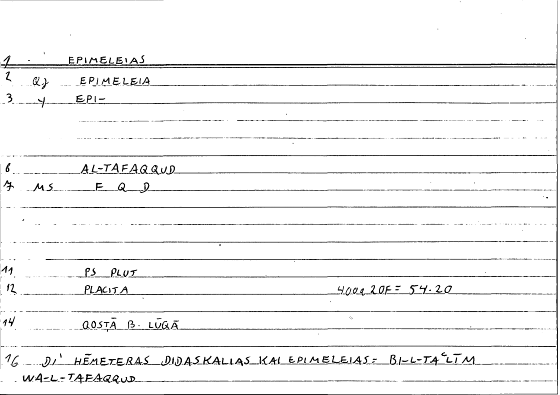 1 EPIMELEIAS
2 QJ EPIMELEIA
3 Y EPI-
6 AL-TAFAQQUD
7 MS F Q D
11 PS PLUT
12 PLACITA 400a20F = 54.20
14 QOSṬĀ B. LŪQĀ
16 DI' HĒMETERAS DIDASKALIAS KAI EPIMELEIAS = BI-L-TAʿLĪM
WA-L-TAFAQQUD